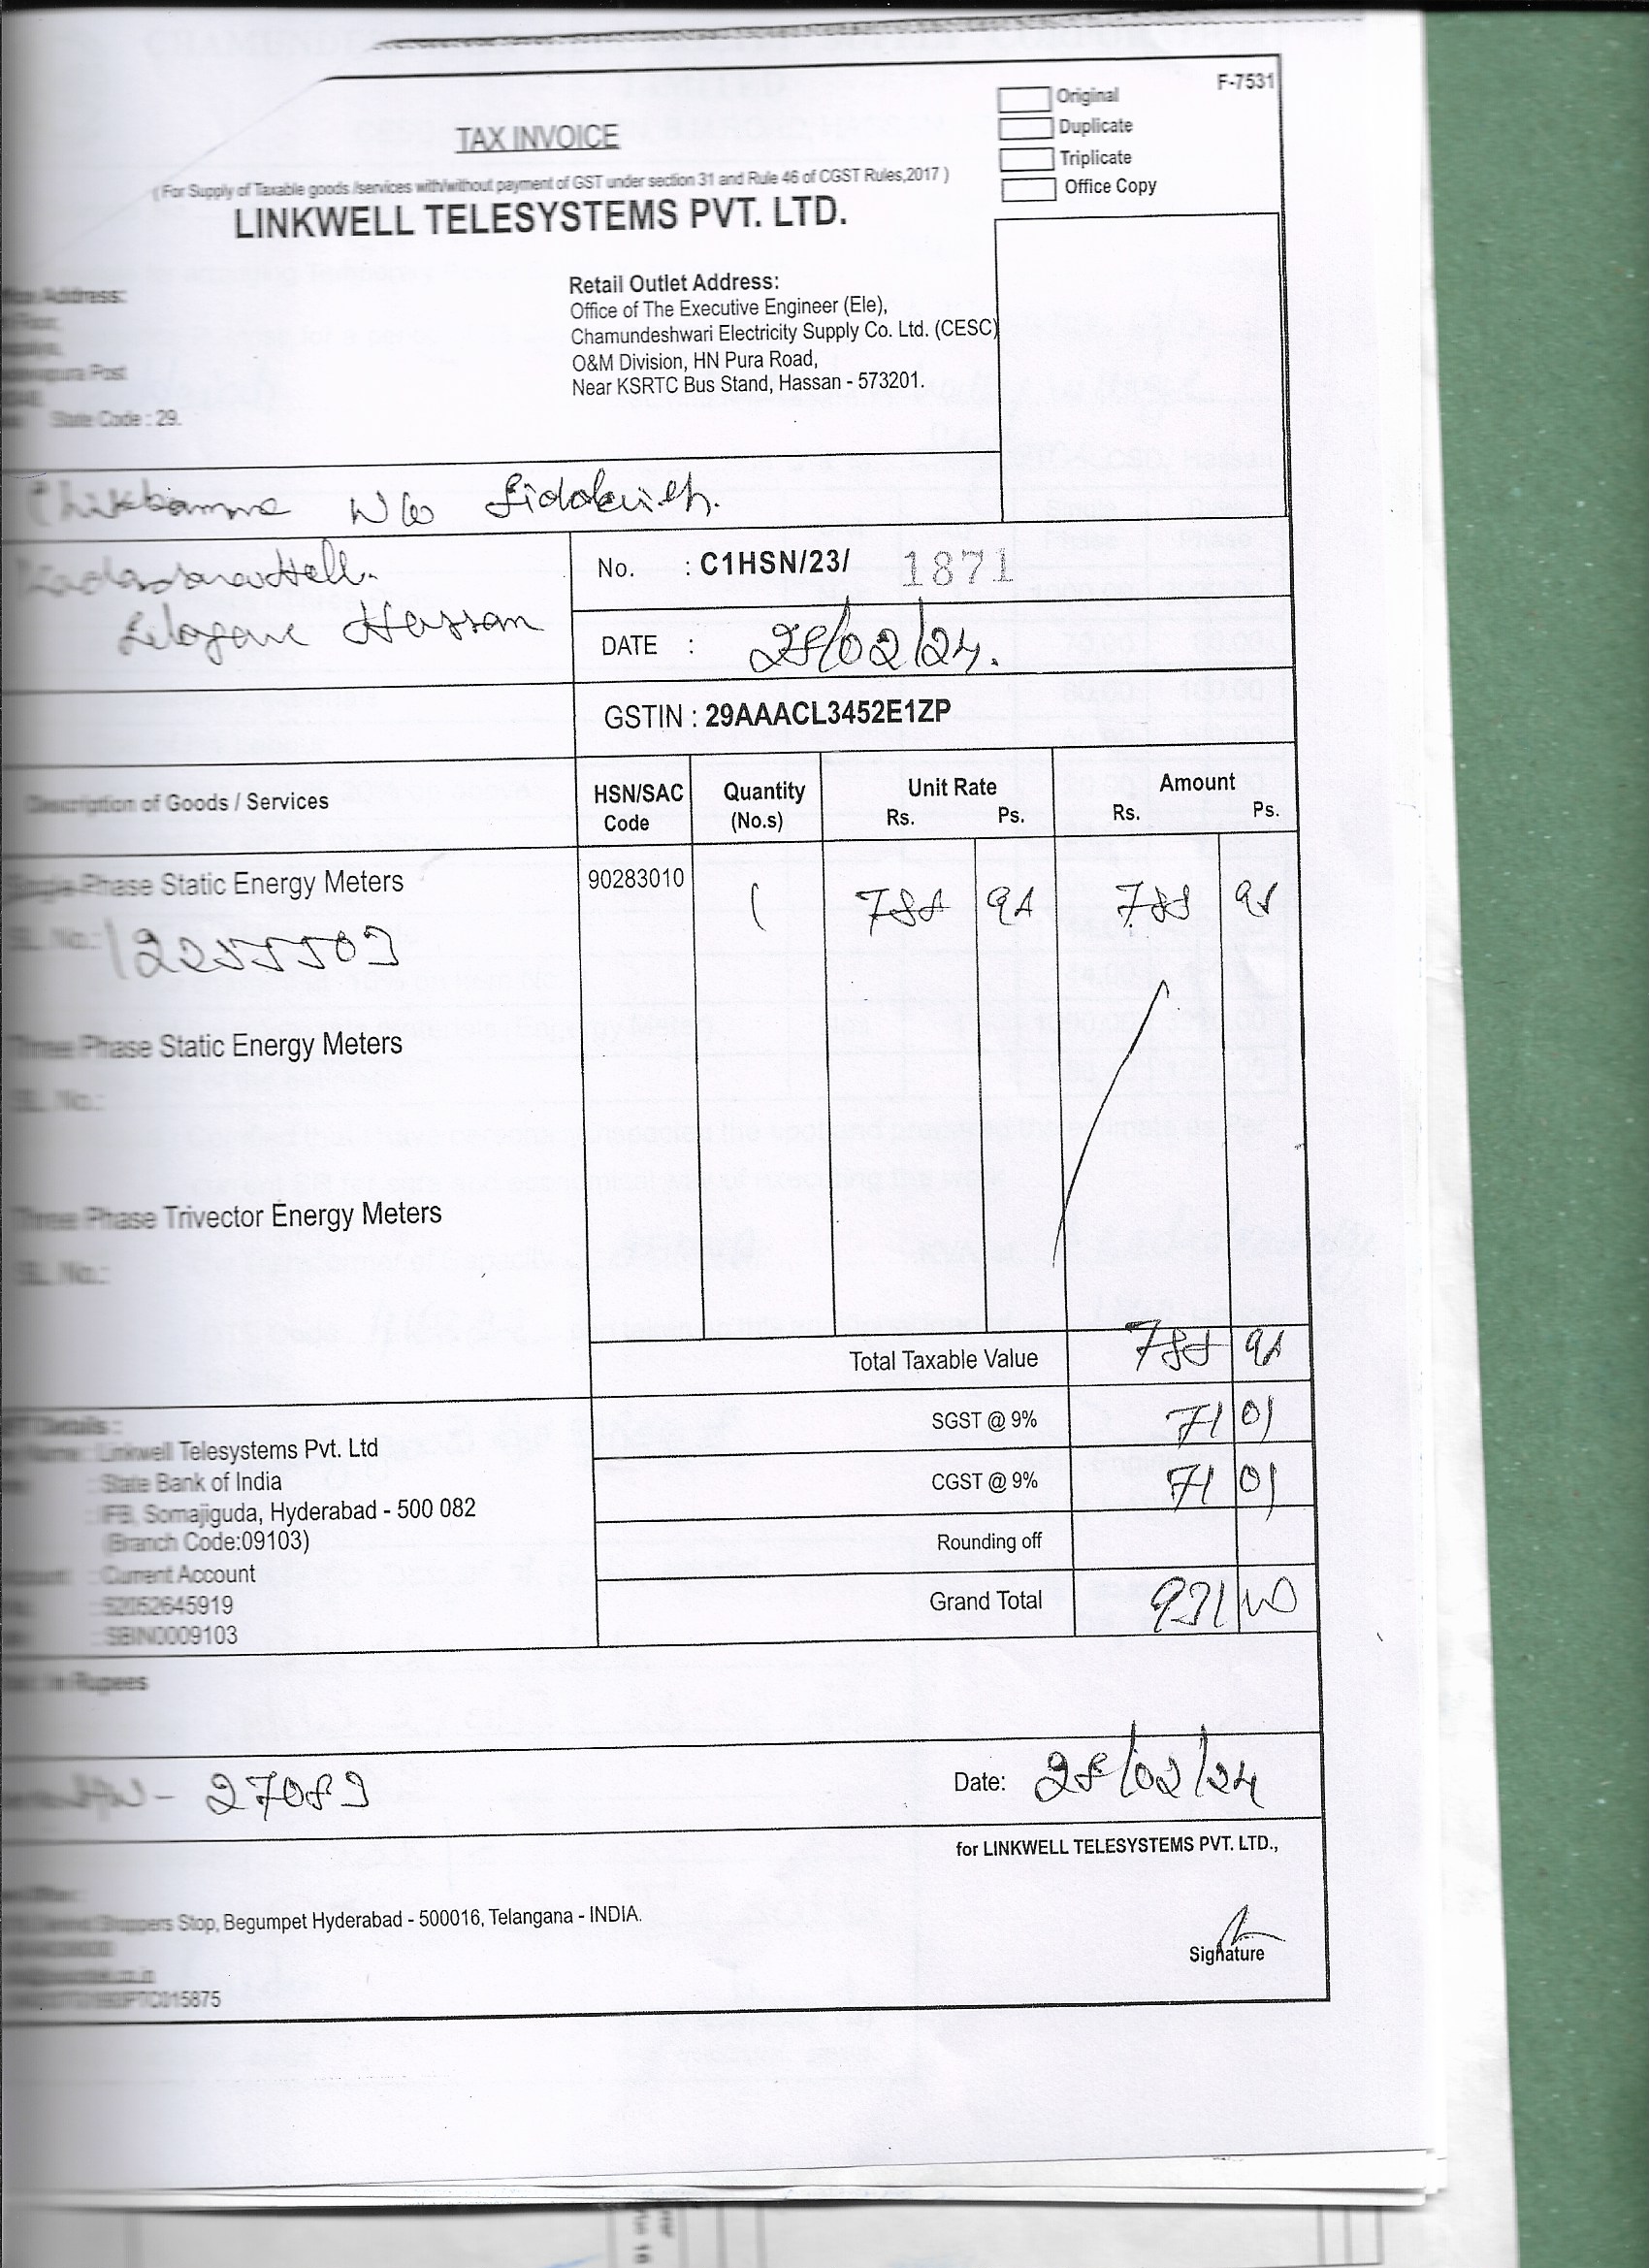 F-7531
Original
Duplicate
Triplicate
Office Copy
TAX INVOICE
( For Supply of Taxable goods /services with/without payment of GST under section 31 and Rule 46 of CGST Rules,2017 )
LINKWELL TELESYSTEMS PVT. LTD.
Address:
Post
State Code : 29.
Retail Outlet Address:
Office of The Executive Engineer (Ele),
Chamundeshwari Electricity Supply Co. Ltd. (CESC)
O&M Division, HN Pura Road,
Near KSRTC Bus Stand, Hassan - 573201.
W/o
Hassan
No. : C1HSN/23/ 1871
DATE : 28/02/24.
GSTIN : 29AAACL3452E1ZP
Description of Goods / Services HSN/SAC Code Quantity (No.s) Unit Rate Rs. Ps. Amount Rs. Ps.
Single Phase Static Energy Meters 90283010 1 788 98 788 98
SL. No.: 12255509
Three Phase Static Energy Meters
SL. No.:
Three Phase Trivector Energy Meters
SL. No.:
Total Taxable Value 788 98
SGST @ 9% 71 01
CGST @ 9% 71 01
Rounding off
Grand Total 931 00
Details :
Name : Linkwell Telesystems Pvt. Ltd
: State Bank of India
: IFB, Somajiguda, Hyderabad - 500 082
(Branch Code:09103)
: Current Account
: 52052645919
: SBIN0009103
in Rupees
- 27089
Date: 28/02/24
for LINKWELL TELESYSTEMS PVT. LTD.,
Shoppers Stop, Begumpet Hyderabad - 500016, Telangana - INDIA.
Signature
PTC015875